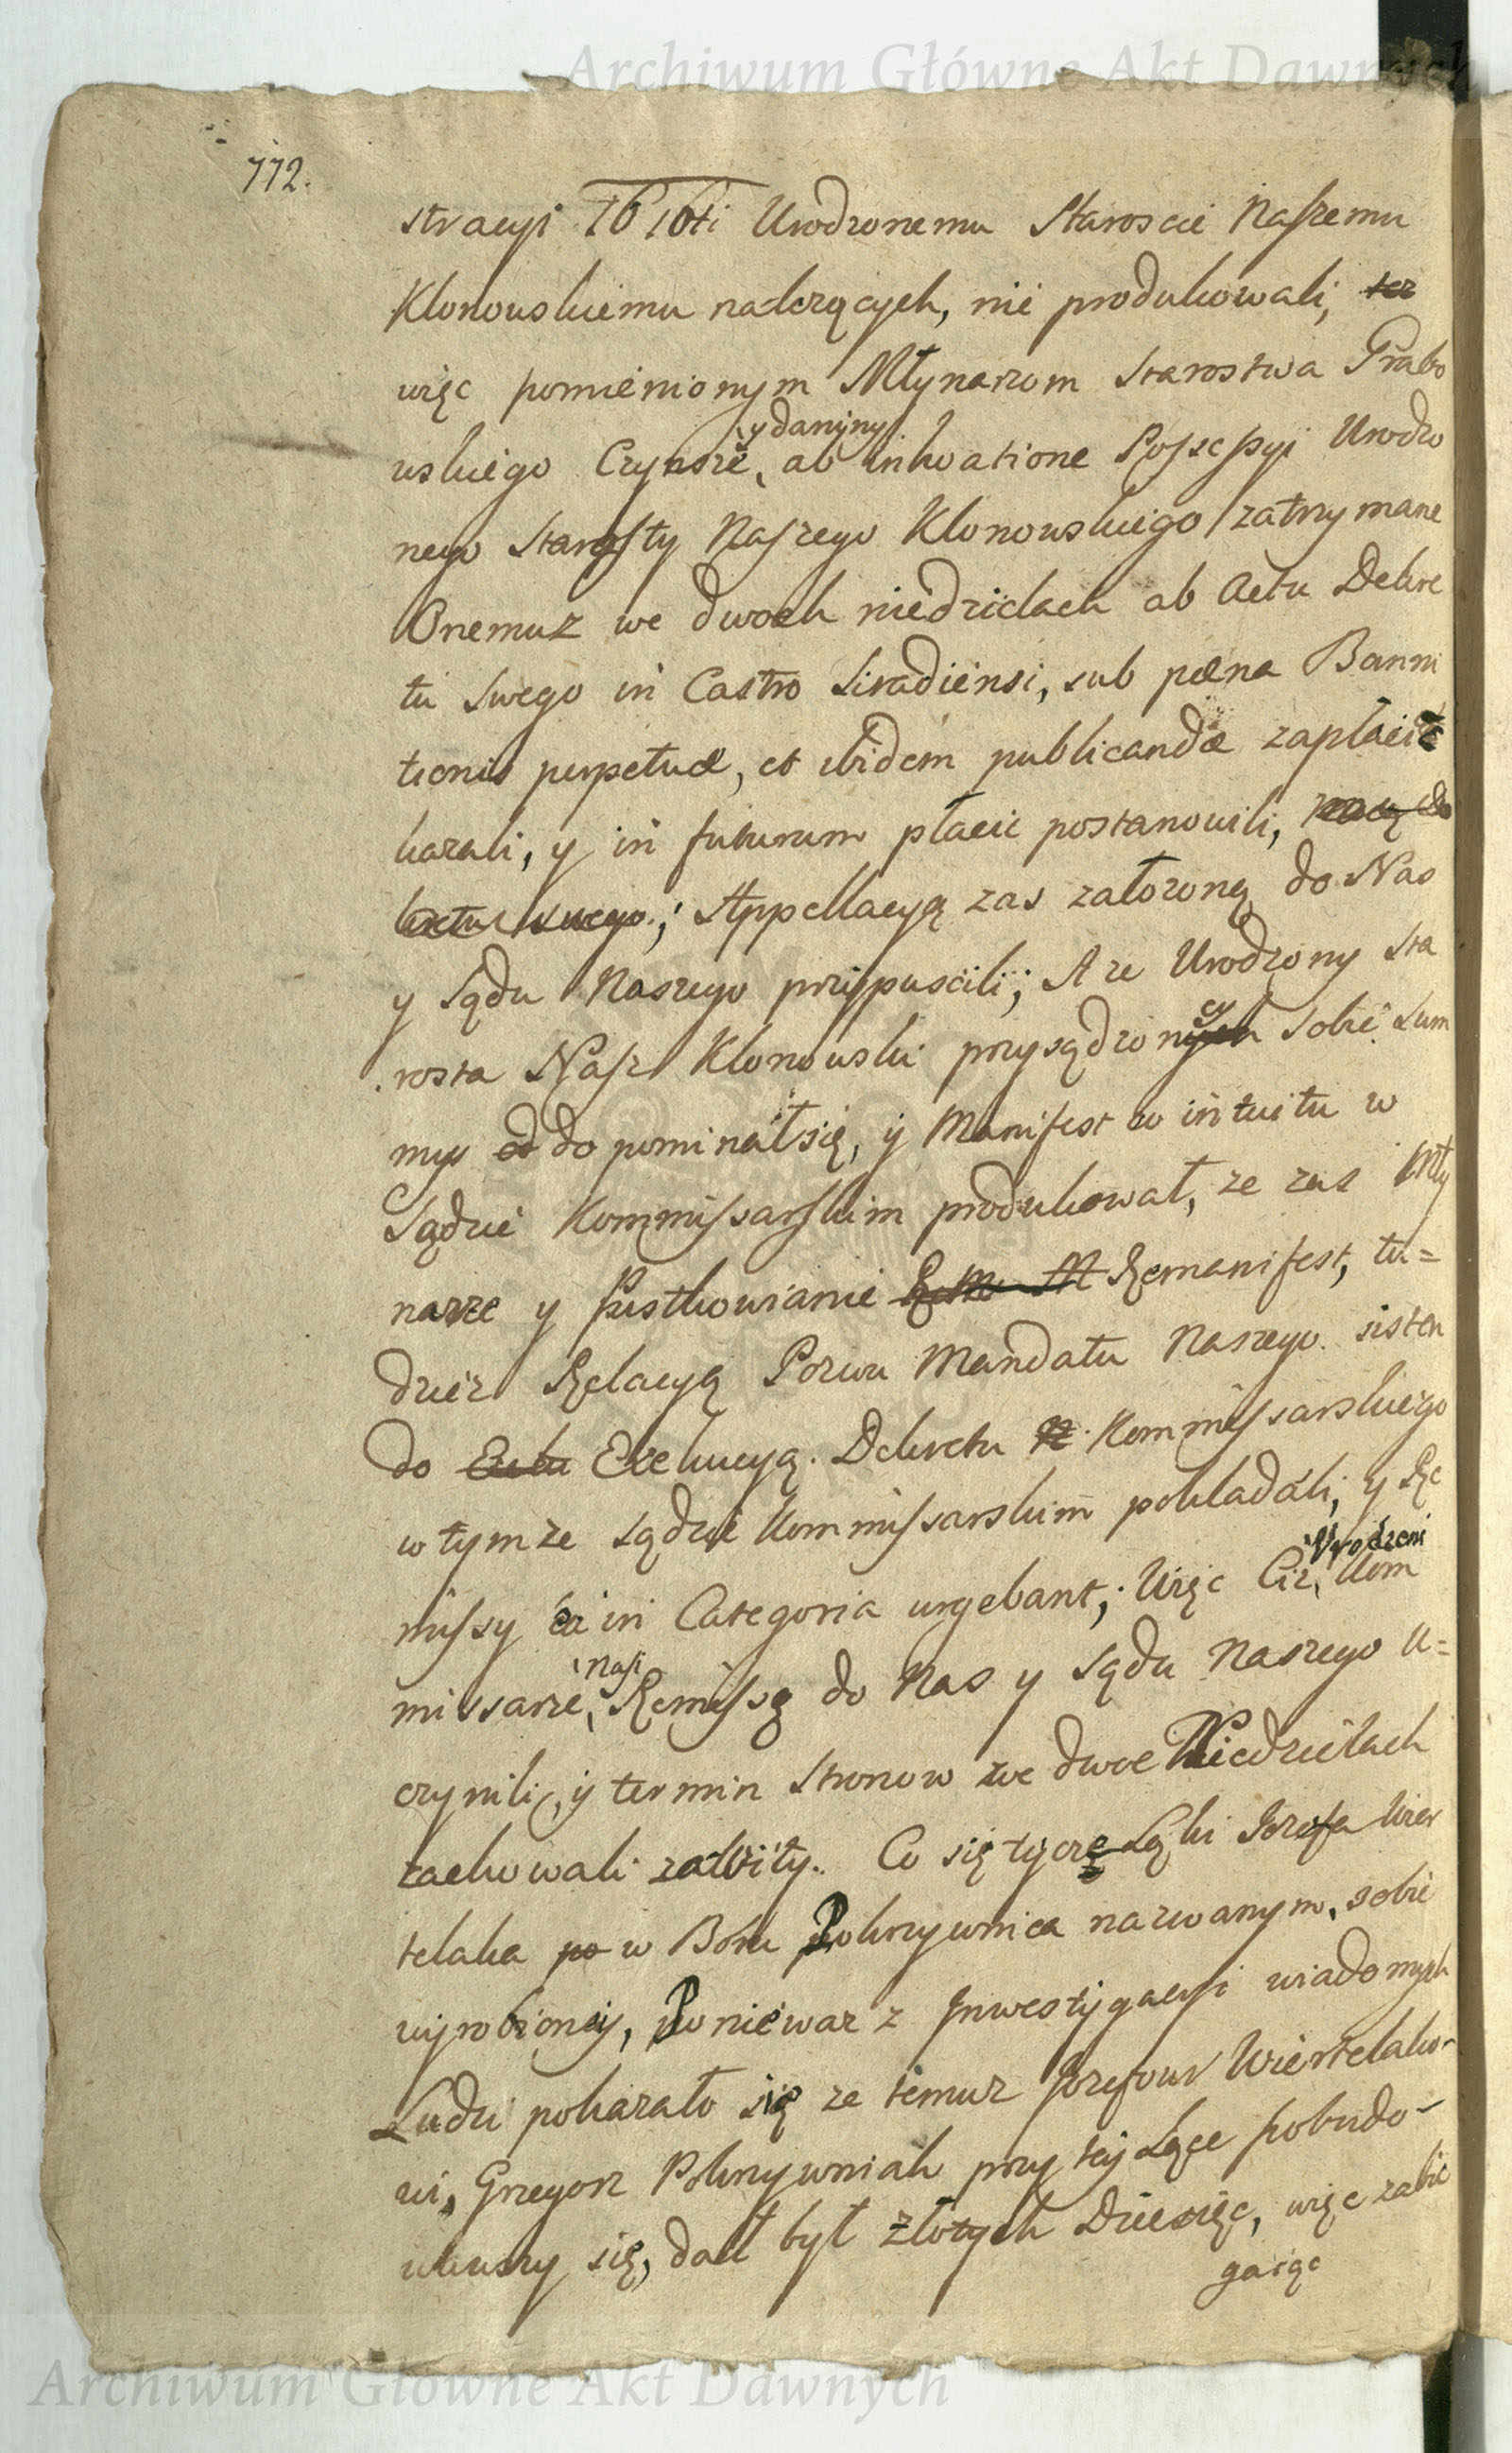 Archiwum Główne Akt Dawnych
772.
stracyi Urodzonemu Staroscie Naszemu
Klonowskiemu należących, nie produkowali, ter
więc pomienionym Młynarzom Starostwa Grabo
wskiego Czynsze, y daniny ab inchoatione Possessyi Urodzo
nego Starosty Naszego Klonowskiego zatrzymane
Onemuz we dwoch niedzielach ab Actu Dekre
tu Swego in Castro Siradiensi, sub pæna Banni
tionis perpetuæ, et ibidem publicandæ zapłacić
kazali, y in futurum płacić postanowili, mocą De
kretu swego; Appellacyą zas załozoną do Nas
y Sądu Naszego przypuscili; A ze Urodzony Sta
rosta Nasz Klonowski przysądzoney Sobie Sum
my do pominał się, y Manifest w intuitu w
Sądzie Kommissarskim produkował, ze zas Mły
narze y Pustkowianie Remanifest, tu=
dziez Relacyą Pozwu Mandatu Naszego sisten
do Exekucyą Dekretu Kommissarskiego
w tymze Sądzie Kommissarskim pokladali, y Re
missy in Categoria urgebant; Więc Ciz, Urodzeni Kom
missarze, Nasi Remissę do Nas y Sądu Naszego u=
czynili, y termin Stronow we dwoe Niedzielach
zachowali zawity. Co się tycze Łąki Jozefa Wier
telaka po w Boru Pokrzywnica nazwanym, sobie
wyrobioney, Poniewaz z Inwestygacyi wiadomych
Ludzi pokazało się ze temuz Jozefowi Wiertelako-
wi, Grzegorz Pokrzywniak przy tey Łące pobudo-
wawszy się, dał był złotych Dziesięc, więc zabie
gaiąc
Archiwum Główne Akt Dawnych